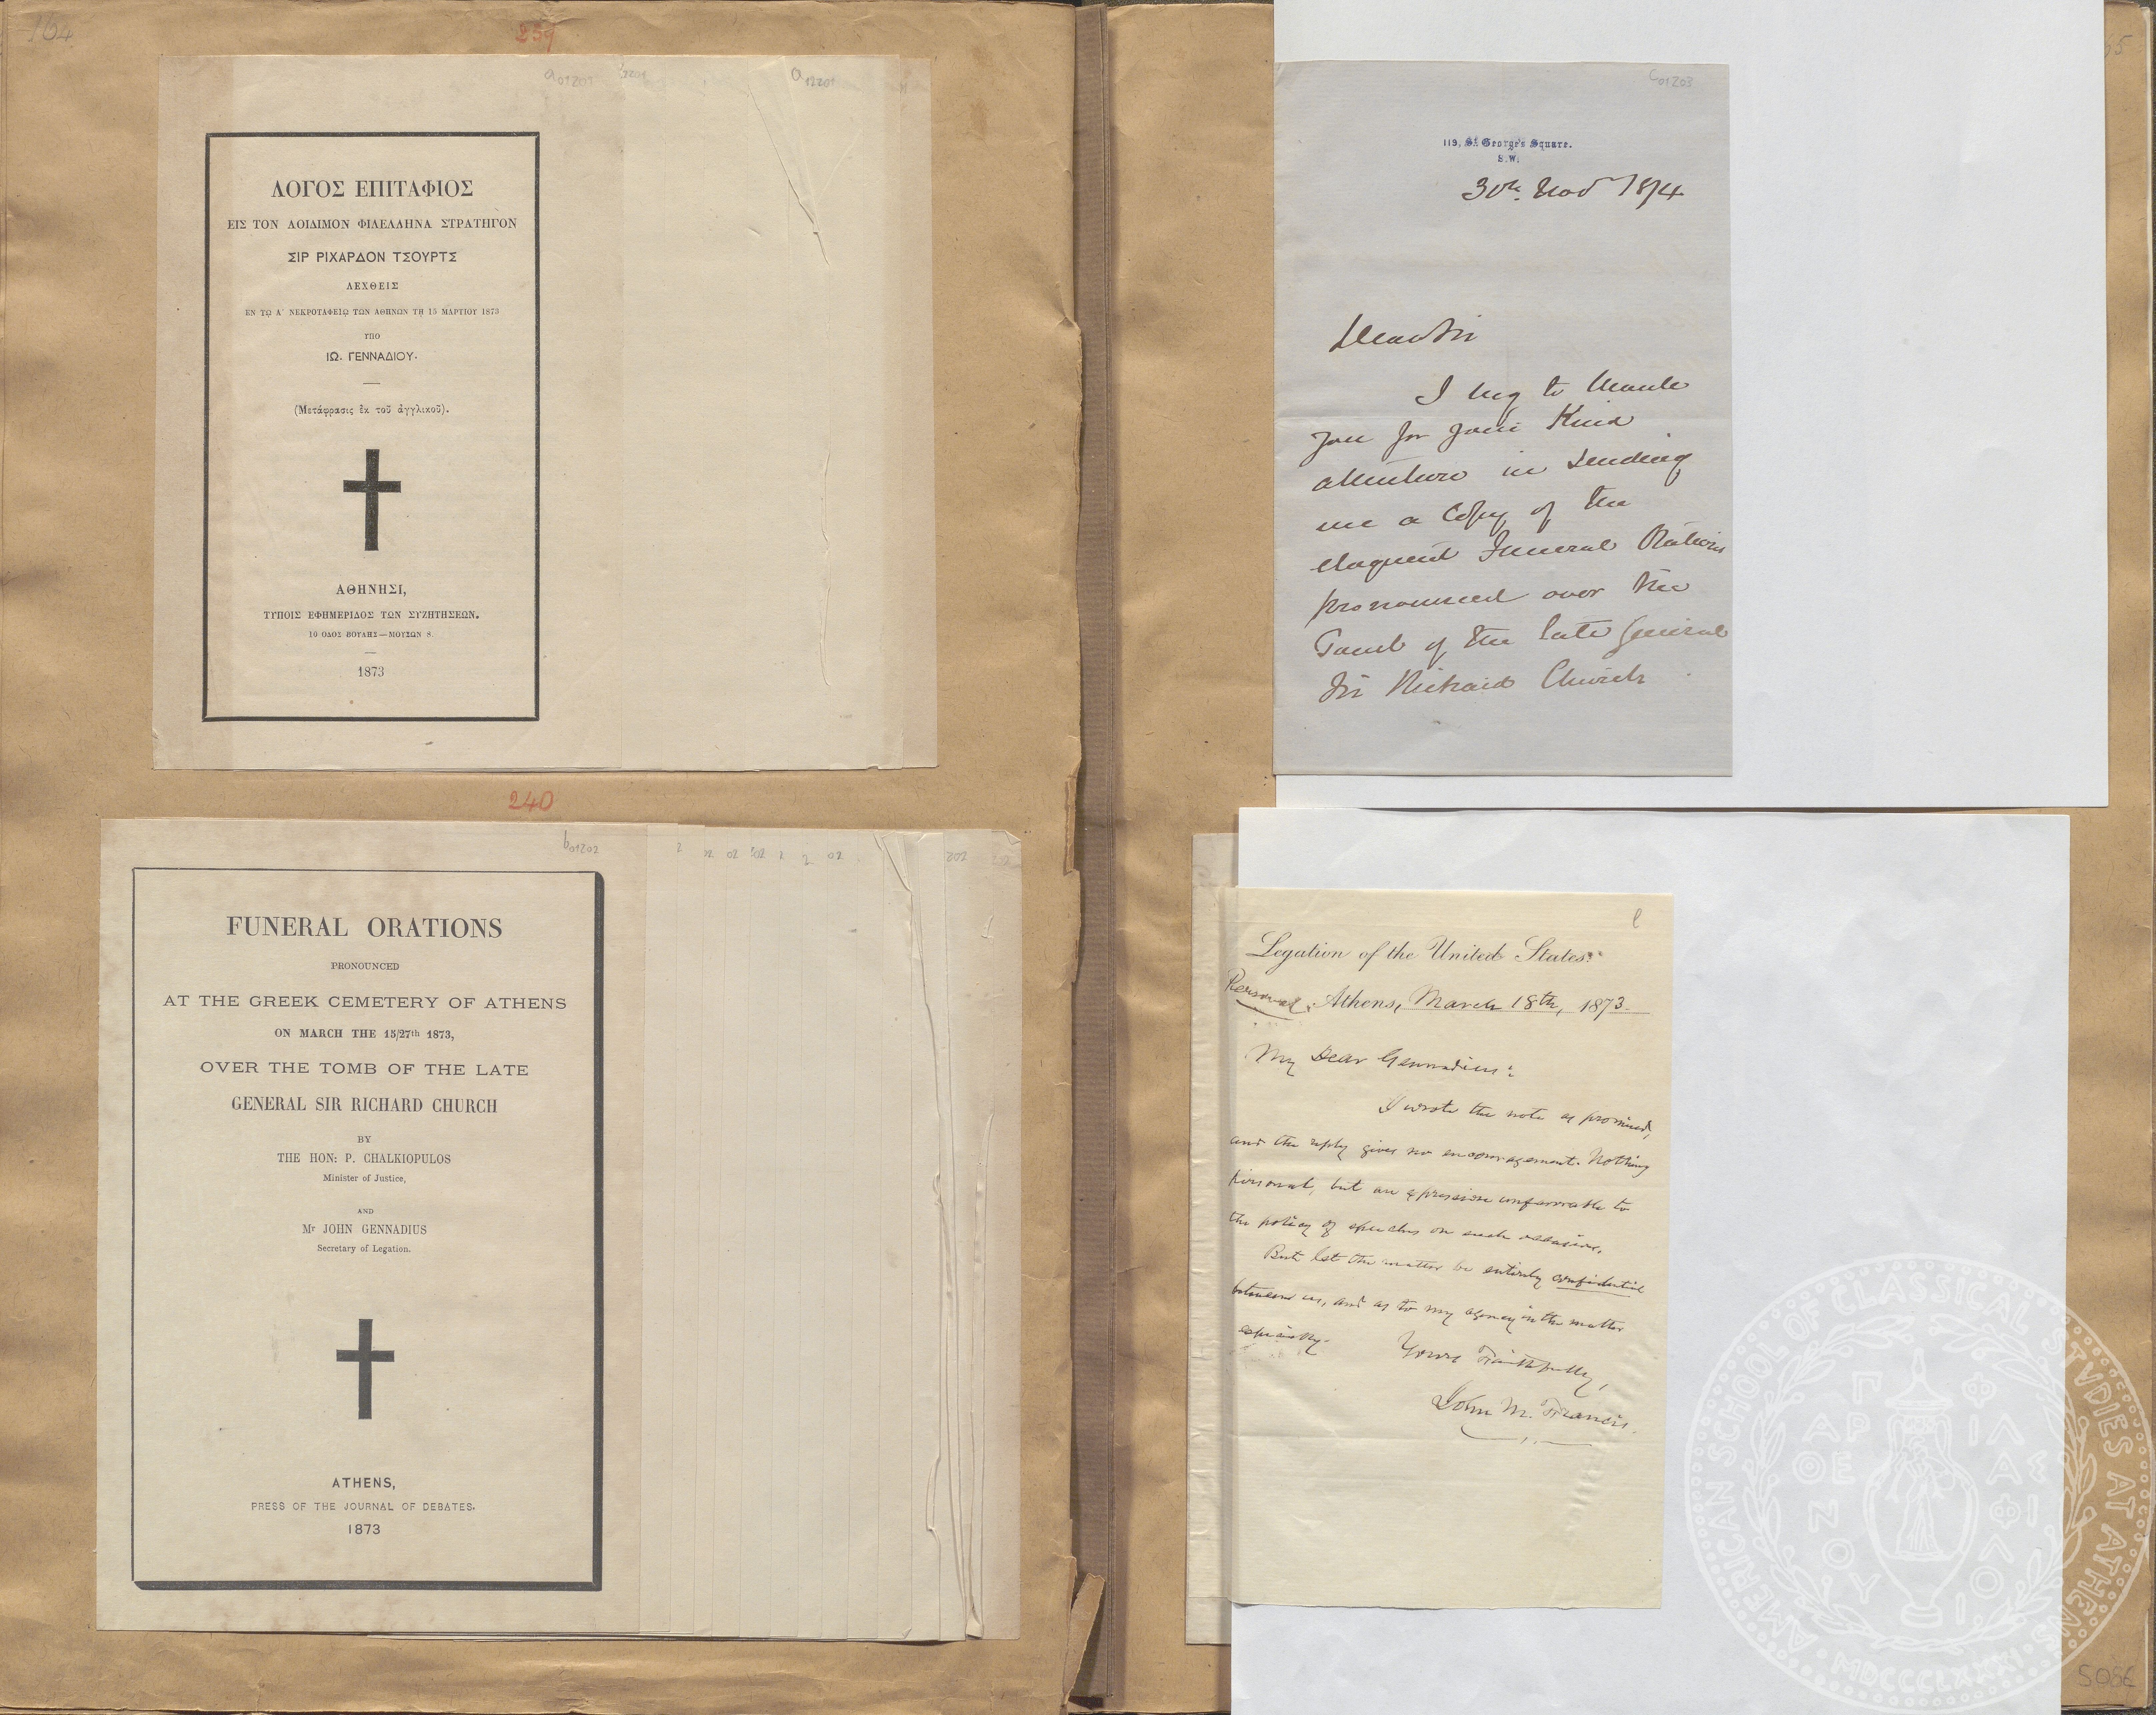 164
239
a01201
2201
a12201
ΛΟΓΟΣ ΕΠΙΤΑΦΙΟΣ
ΕΙΣ ΤΟΝ ΑΟΙΔΙΜΟΝ ΦΙΛΕΛΛΗΝΑ ΣΤΡΑΤΗΓΟΝ
ΣΙΡ ΡΙΧΑΡΔΟΝ ΤΣΟΥΡΤΣ
ΛΕΧΘΕΙΣ
ΕΝ ΤΩ Α' ΝΕΚΡΟΤΑΦΕΙΩ ΤΩΝ ΑΘΗΝΩΝ ΤΗ 15 ΜΑΡΤΙΟΥ 1873
ΥΠΟ
ΙΩ. ΓΕΝΝΑΔΙΟΥ.
(Μετάφρασις ἐκ τοῦ ἀγγλικοῦ).
ΑΘΗΝΗΣΙ,
ΤΥΠΟΙΣ ΕΦΗΜΕΡΙΔΟΣ ΤΩΝ ΣΥΖΗΤΗΣΕΩΝ.
10 ΟΔΟΣ ΒΟΥΛΗΣ—ΜΟΥΣΩΝ 8.
1873
240
b01202
2 02 02 2 2 02 202
FUNERAL ORATIONS
PRONOUNCED
AT THE GREEK CEMETERY OF ATHENS
ON MARCH THE 15/27th 1873,
OVER THE TOMB OF THE LATE
GENERAL SIR RICHARD CHURCH
BY
THE HON: P. CHALKIOPULOS
Minister of Justice,
AND
Mr JOHN GENNADIUS
Secretary of Legation.
ATHENS,
PRESS OF THE JOURNAL OF DEBATES.
1873
c01203
119, St George's Square.
S.W.
30th Nov 1874
Dear Sir
I beg to thank
you for your kind
attention in sending
me a Copy of the
eloquent Funeral Orations
pronounced over the
Tomb of the late General
Sir Richard Church
Legation of the United States.
Personal. Athens, March 18th, 1873.
My Dear Gennadius:
I wrote the note as promised,
and the reply gives no encouragement. Nothing
personal, but an expression unfavorable to
the policy of speeches on such occasions.
But let the matter be entirely confidential
between us, and as to my agency in the matter
especially.
Yours Faithfully,
John M. Francis.
AMERICAN SCHOOL OF CLASSICAL STVDIES AT ATHENS
ΠΑΡΘΕΝΟΥ ΦΙΛΑΣ ΦΙΛΟΙ
MDCCCLXXXI